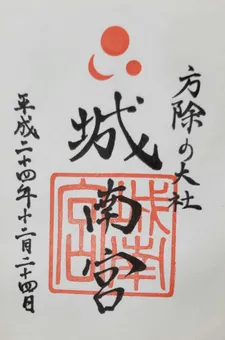 方除の大社
城南宮
平成二十四年十二月二十四日
城南宮印